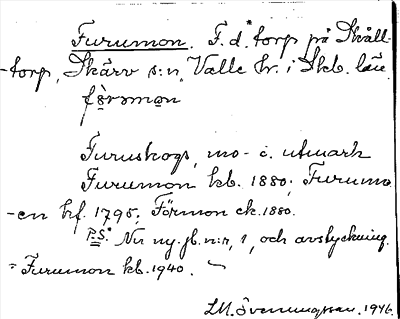 Furumon. F. d. torp på Skåll-
-torp, Skärv s:n, Valle hr. i Skb. län
fö̀rmọn
Furuskogs, mo- i. utmark
Furumon kb. 1880; Furumo
-en hf. 1795; Förmon ek. 1880.
P.S. Nu ny. jb. n:r, 1, och avstyckning.
= Furumon kb. 1940.
LM. Svenungsson. 1946.